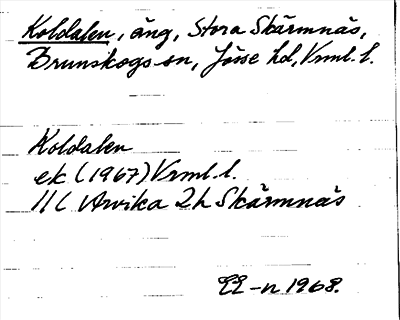 Koldalen, äng, Stora Skärmnäs,
Brunskogs sn, Jösse hd, Vrml. l.
Koldalen
ek (1967) Vrml. l.
11 C Arvika 2h Skärmnäs
EE-n 1968.